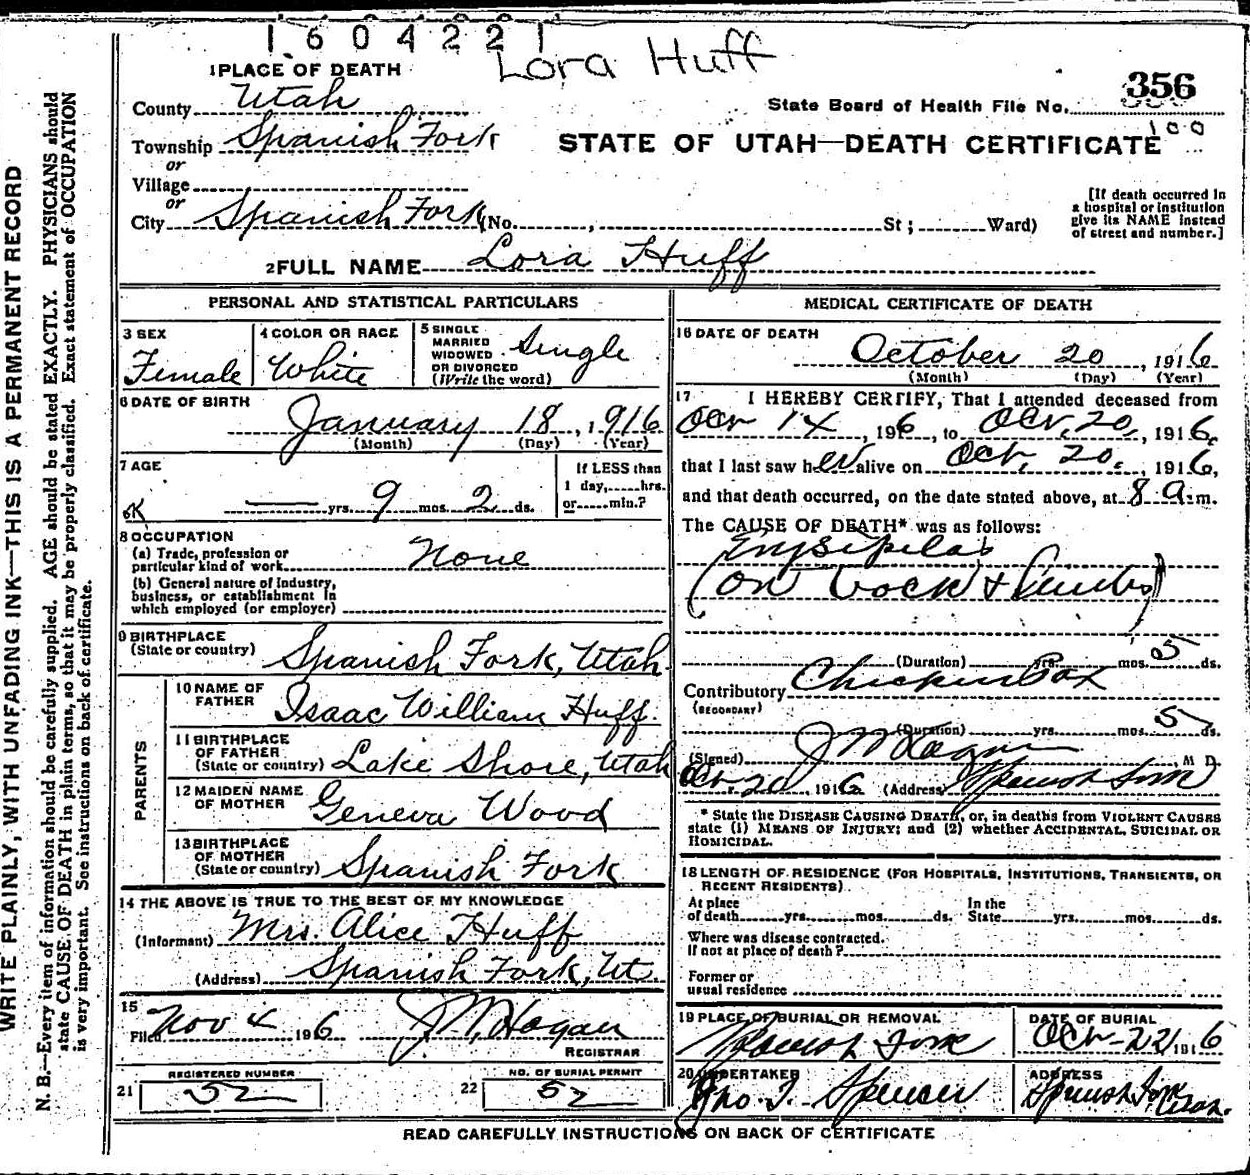 1604221
Lora Huff
1 PLACE OF DEATH
County Utah
State Board of Health File No. 356
100
Township Spanish Fork
STATE OF UTAH—DEATH CERTIFICATE
or
Village
or
City Spanish Fork (No. , St ; Ward)
[If death occurred in
a hospital or institution
give its NAME instead
of street and number.]
2 FULL NAME Lora Huff
PERSONAL AND STATISTICAL PARTICULARS
3 SEX
Female
4 COLOR OR RACE
White
5 SINGLE
MARRIED
WIDOWED
OR DIVORCED
(Write the word)
Single
6 DATE OF BIRTH
January 18, 1916
(Month) (Day) (Year)
7 AGE
yrs. 9 mos. 2 ds.
If LESS than
1 day, hrs.
or min.?
8 OCCUPATION
(a) Trade, profession or
particular kind of work None
(b) General nature of industry,
business, or establishment in
which employed (or employer)
9 BIRTHPLACE
(State or country) Spanish Fork, Utah
PARENTS
10 NAME OF
FATHER Isaac William Huff.
11 BIRTHPLACE
OF FATHER
(State or country) Lake Shore, Utah
12 MAIDEN NAME
OF MOTHER Geneva Wood
13 BIRTHPLACE
OF MOTHER
(State or country) Spanish Fork
14 THE ABOVE IS TRUE TO THE BEST OF MY KNOWLEDGE
(Informant) Mrs. Alice Huff
(Address) Spanish Fork, Ut.
15
Filed Nov 4 1916 J. M. Hogan
REGISTRAR
21 REGISTERED NUMBER 52
22 NO. OF BURIAL PERMIT 52
MEDICAL CERTIFICATE OF DEATH
16 DATE OF DEATH
October 20, 1916
(Month) (Day) (Year)
17 I HEREBY CERTIFY, That I attended deceased from
Oct 14, 1916, to Oct. 20, 1916,
that I last saw her alive on Oct. 20, 1916,
and that death occurred, on the date stated above, at 8 a. m.
The CAUSE OF DEATH* was as follows:
Erysipelas
(on back & limbs)
(Duration) yrs. mos. 5 ds.
Contributory Chicken Pox
(SECONDARY)
(Duration) yrs. mos. 5 ds.
(Signed) J M Hogan, M D.
Oct. 20 1916 (Address) Spanish Fork
* State the DISEASE CAUSING DEATH, or, in deaths from VIOLENT CAUSES
state (1) MEANS OF INJURY; and (2) whether ACCIDENTAL, SUICIDAL OR
HOMICIDAL.
18 LENGTH OF RESIDENCE (FOR HOSPITALS, INSTITUTIONS, TRANSIENTS, OR
RECENT RESIDENTS)
At place
of death yrs. mos. ds.
In the
State yrs. mos. ds.
Where was disease contracted.
If not at place of death?
Former or
usual residence
19 PLACE OF BURIAL OR REMOVAL
Spanish Fork
DATE OF BURIAL
Oct-22 1916
20 UNDERTAKER
Jno. T. Spencer
ADDRESS
Spanish Fork
READ CAREFULLY INSTRUCTIONS ON BACK OF CERTIFICATE
WRITE PLAINLY, WITH UNFADING INK—THIS IS A PERMANENT RECORD
N. B.—Every item of information should be carefully supplied. AGE should be stated EXACTLY. PHYSICIANS should
state CAUSE OF DEATH in plain terms, so that it may be properly classified. Exact statement of OCCUPATION
is very important. See instructions on back of certificate.